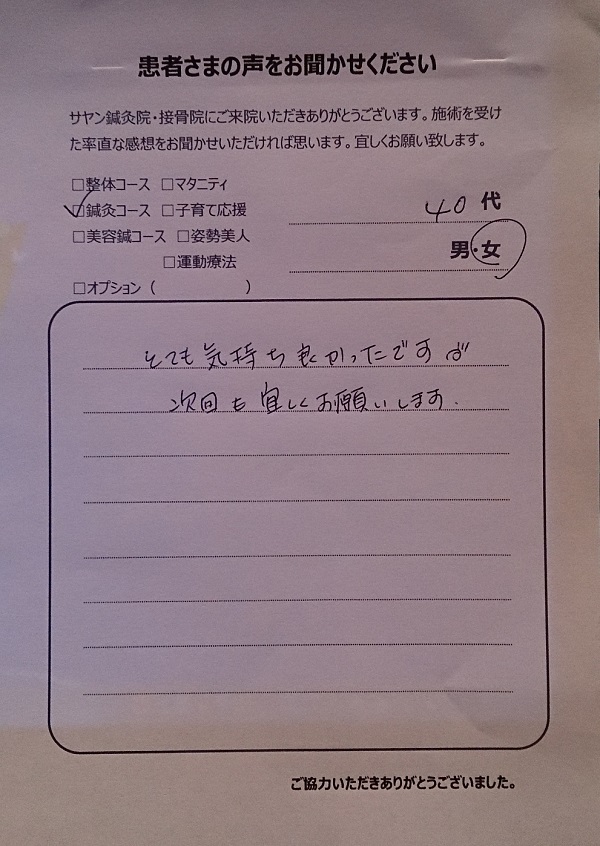 患者さまの声をお聞かせください
サヤン鍼灸院・接骨院にご来院いただきありがとうございます。施術を受け
た率直な感想をお聞かせいただければ思います。宜しくお願い致します。
□整体コース □マタニティ
☑鍼灸コース □子育て応援
40代
□美容鍼コース □姿勢美人
男・女
□運動療法
□オプション( )
とても気持ち良かったです
次回も宜しくお願いします.
ご協力いただきありがとうございました。